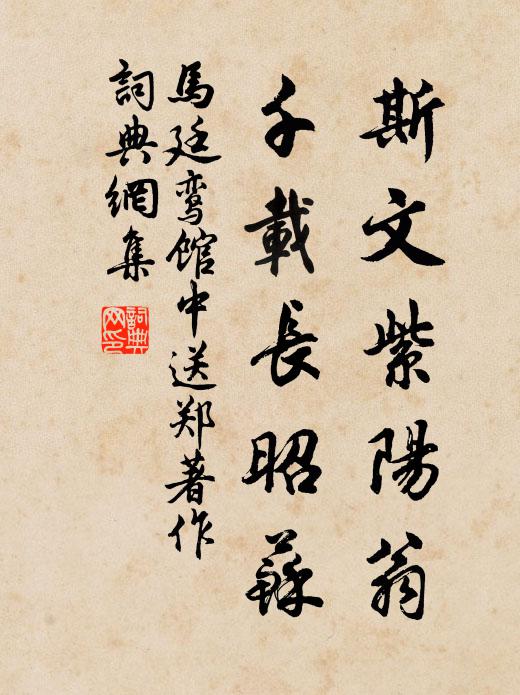 斯文紫陽翁
千載長昭蘇
馬廷鸾馆中送郑著作
詞典網集
詞典网印